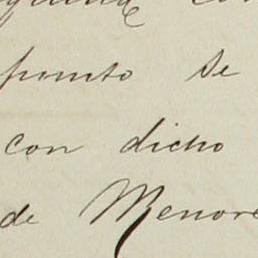 punto se
con dicho
de Menore